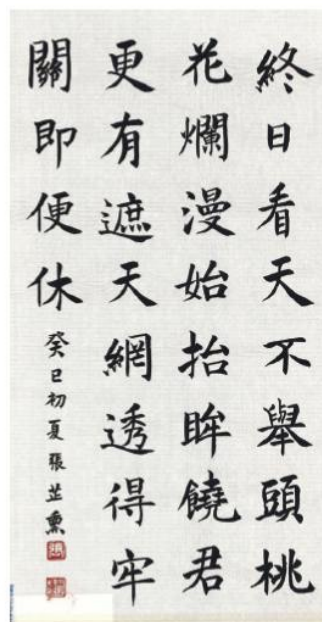 終日看天不舉頭桃
花爛漫始抬眸饒君
更有遮天網透得牢
關即便休
癸巳初夏張芷熏